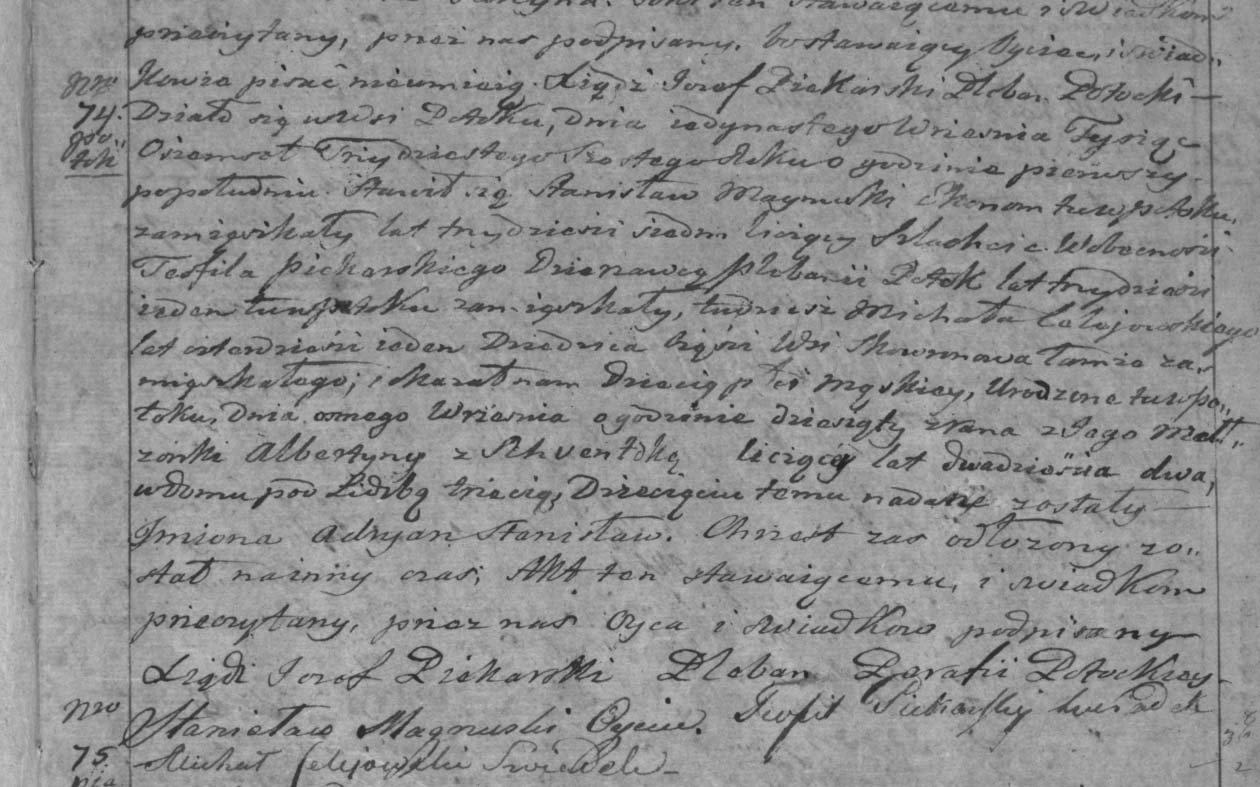 stawaiącemu i świadkom
przeczytany, przez nas podpisany, bo stawaiący Oyciec, i świad„
Nro kowie pisać nieumieią. Xiądz Jozef Piekarski Pleban Potocki —
74. Działo się w Wsi Potoku, dnia iedynastego Wrzesnia Tysiąc
po„ tok Ośmset Trzydziestego Szostego Roku o godzinie pierwszy
popołudniu. Stawił się Stanisław Magnuski Ekonom tu w potoku
zamięszkały lat trzydziesci siedm liczący Szlachcic. W obecnosci
Teofila Piekarskiego Dzierzawcy Plebanii Potok lat trzydziesci
ieden tu w potoku zamięszkały, tudziesz Michała Lelejowskiego
lat czterdziesci ieden Dziedzica Części Wsi Skowronowa tamże za„
mięszkałego; okazał nam Dziecię płci męskiey, Urodzone tu w po„
toku, dnia osmego Wrzesnia o godzinie dziesięty zrana z Jego Małź„
zonki Albertyny z liczącą lat dwadziescia dwa,
w domu pod Lidzbą trzecią, Dziecięciu temu nadane zostały —
Jmiona Adryan Stanisław. Chrzest zas odłozony zo„
stał na inny czas, Akt ten stawaiącemu, i swiadkom
przeczytany, przez nas Oyca i swiadkow podpisany
Xiądz Jozef Piekarski Pleban Parafii Potockiey
Nro Stanisław Magnuski Oyciec. Teofil Piekarski swiadek
75. Michał Lelejowski Swiadek —